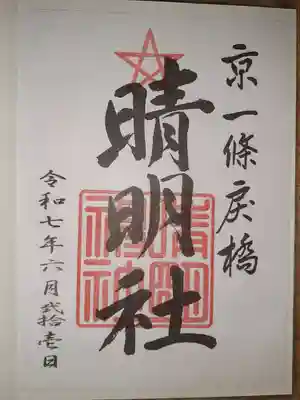 京一條戻橋
晴明社
晴明神社
令和七年六月弐拾壱日